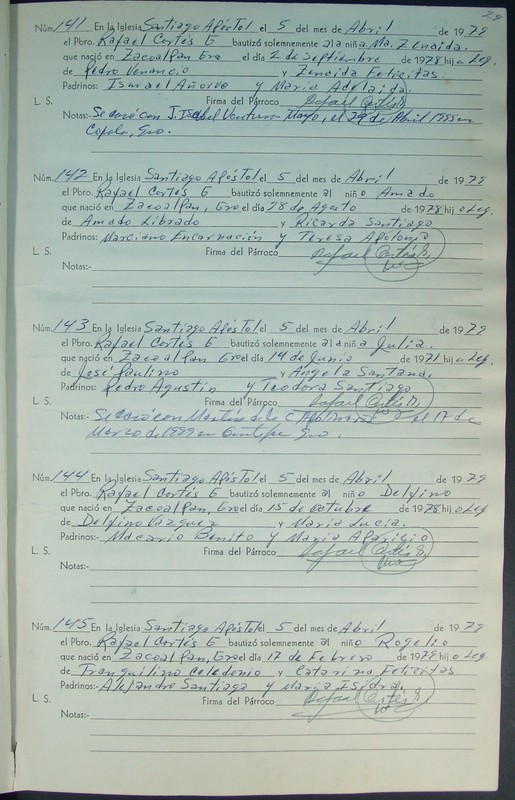 29
Núm. 141 En la Iglesia Santiago Apóstol el 5 del mes de Abril de 1979
el Pbro. Rafael Cortés E bautizó solemnemente a la niña Ma. Zenaida.
que nació en Zacoalpan Gro el día 2 de Septiembre de 1978 hija Leg.
de Pedro Venancio y Zenaida Felicitas.
Padrinos: Ismael Añorve y Maria Adelaida
L. S. Firma del Párroco Rafael Cortés E.
Notas: Se casó con J. Isabel Ventura Mayo, el 29 de Abril 1995 en
Copala, Gro.
Núm. 142 En la Iglesia Santiago Apóstol el 5 del mes de Abril de 1979
el Pbro. Rafael Cortés E bautizó solemnemente al niño Amado
que nació en Zacoalpan, Gro el día 28 de Agosto de 1978 hijo Leg.
de Amado Librado y Ricarda Santiago
Padrinos: Marciano Encarnación y Teresa Apolonio
L. S. Firma del Párroco Rafael Cortés E.
Notas:-
Núm. 143 En la Iglesia Santiago Apóstol el 5 del mes de Abril de 1979
el Pbro. Rafael Cortés E bautizó solemnemente a la niña Julia.
que nació en Zacoalpan Gro el día 14 de Junio de 1971 hija Leg.
de José Paulino y Angela Santana.
Padrinos: Pedro Agustin y Teodora Santiago
L. S. Firma del Párroco Rafael Cortés E.
Notas: Se casó con Martín de la C el 17 de
Marzo de 1999 en Gro.
Núm. 144 En la Iglesia Santiago Apóstol el 5 del mes de Abril de 1979
el Pbro. Rafael Cortés E bautizó solemnemente al niño Delfino
que nació en Zacoalpan, Gro el día 15 de Octubre de 1978 hijo Leg
de Delfino Vázquez y Maria Lucia.
Padrinos:- Macario Benito y Maria Aparicio
L. S. Firma del Párroco Rafael Cortés E.
Notas:-
Núm. 145 En la Iglesia Santiago Apóstol el 5 del mes de Abril de 1979
el Pbro. Rafael Cortés E bautizó solemnemente al niño Rogelio
que nació en Zacoalpan, Gro el día 17 de Febrero de 1979 hijo Leg.
de Tranquilino Celedonio y Catarina Felicitas
Padrinos:- Alejandro Santiago y Maria Isidra.
L. S. Firma del Párroco Rafael Cortés E.
Notas:-